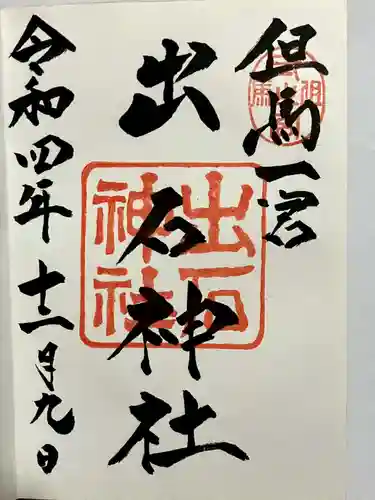 但馬一宮
出石神社
令和四年十二月九日
出石神社